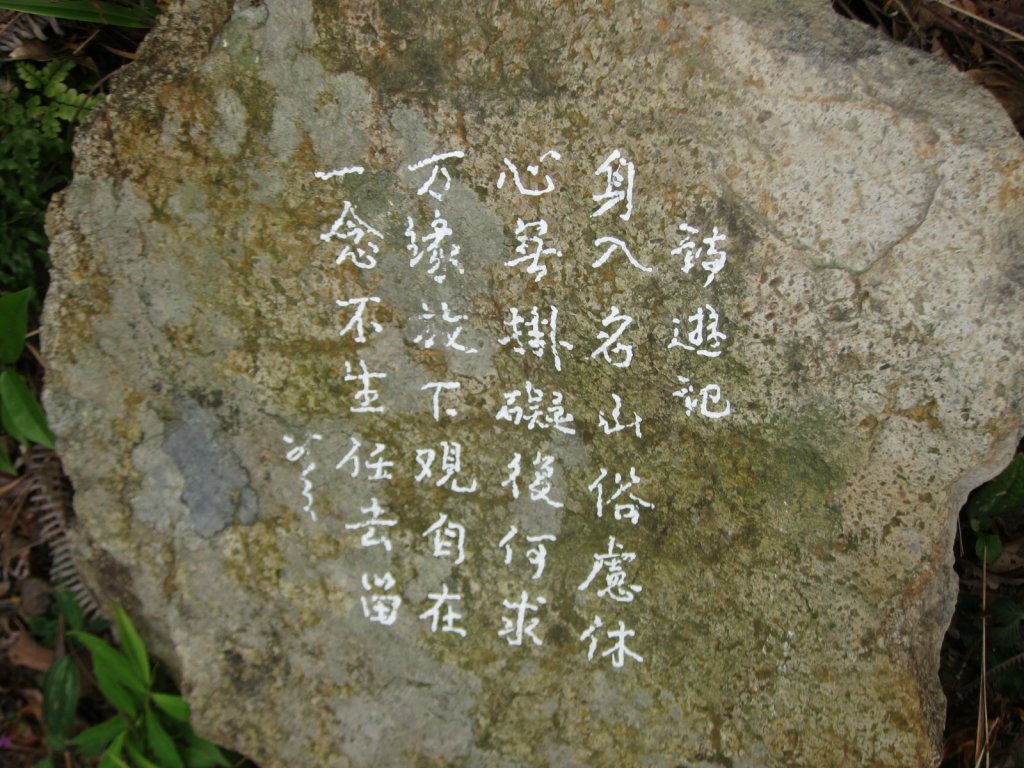 詩遊記
身入名山俗慮休
心無掛礙復何求
万缘放下观自在
一念不生任去留